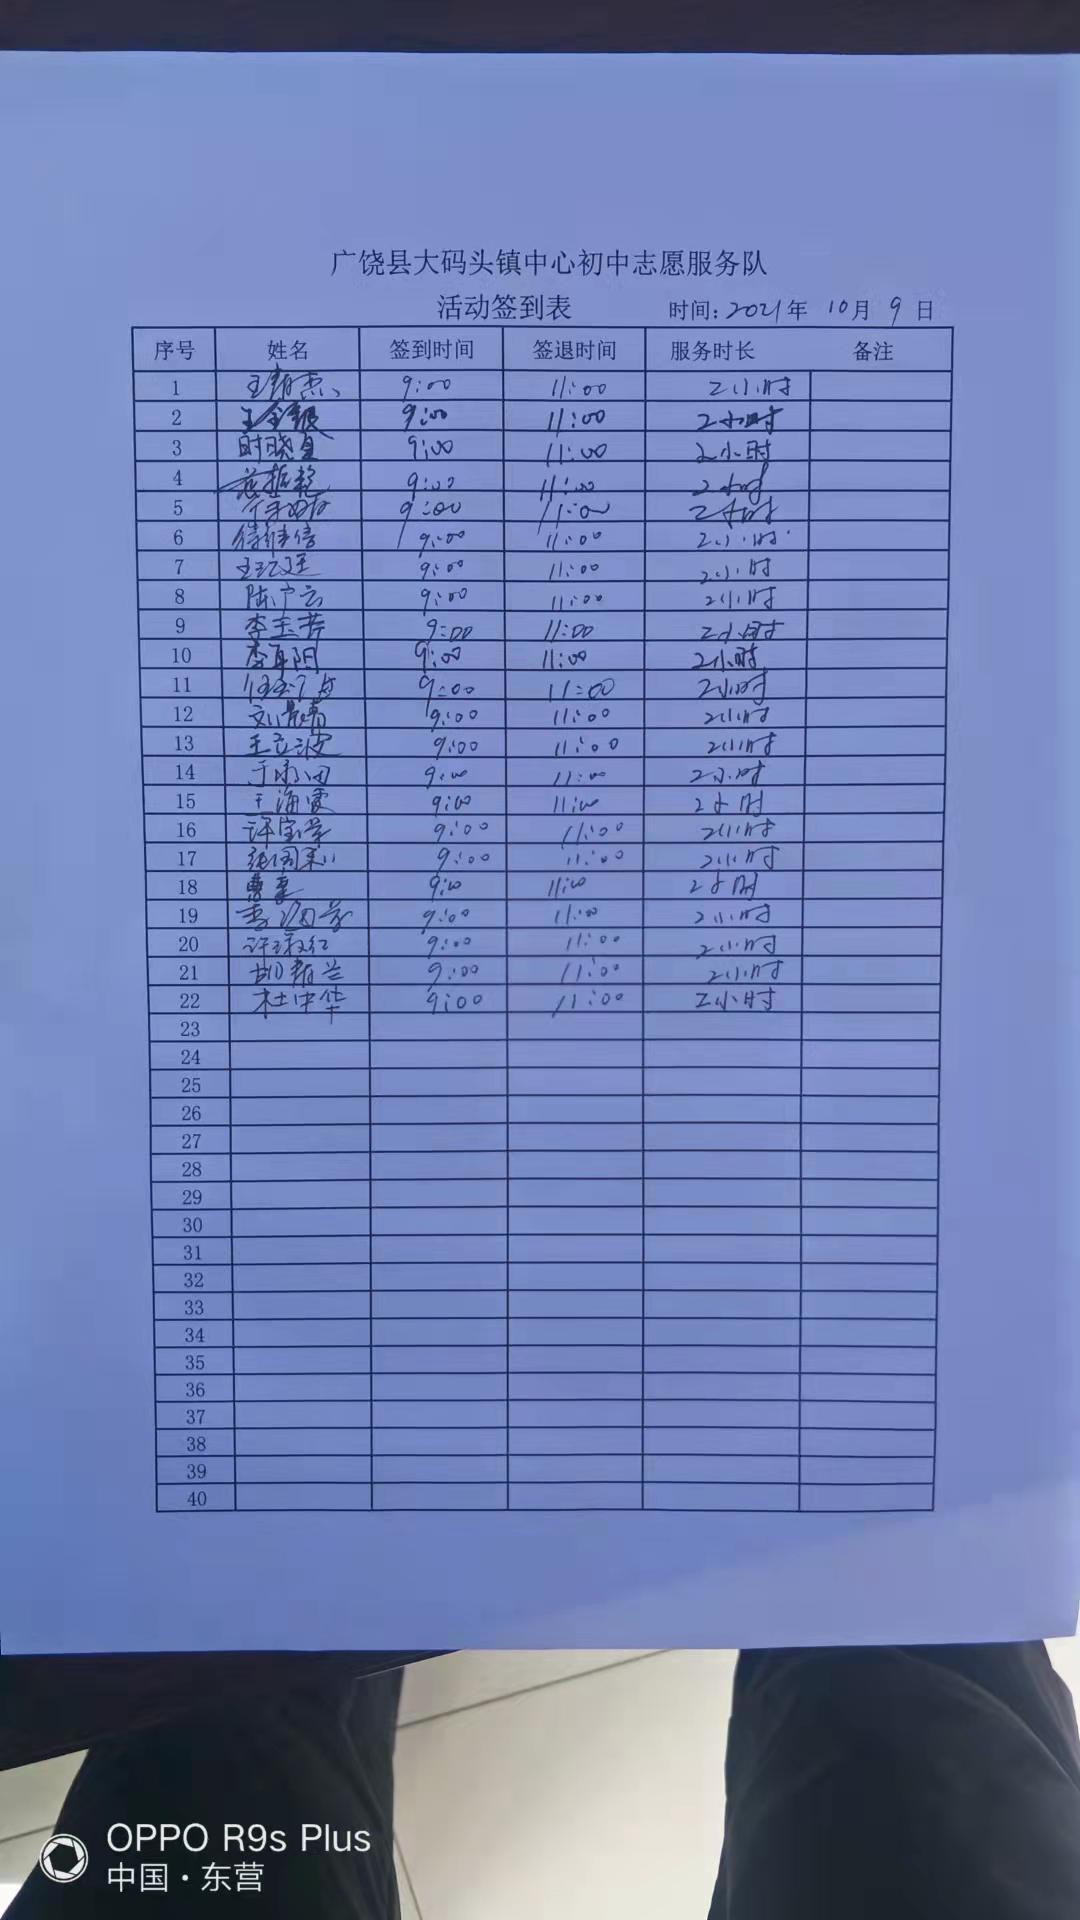 广饶县大码头镇中心初中志愿服务队
活动签到表 时间: 2021年 10月 9日
序号 姓名 签到时间 签退时间 服务时长 备注
1 9:00 11:00 2小时
2 9:00 11:00 2小时
3 时晓 9:00 11:00 2小时
4 9:00 11:00 2小时
5 9:00 11:00 2小时
6 9:00 11:00 2小时
7 9:00 11:00 2小时
8 陈广云 9:00 11:00 2小时
9 李玉芹 9:00 11:00 2小时
10 李 阳 9:00 11:00 2小时
11 9:00 11:00 2小时
12 刘 9:00 11:00 2小时
13 王立波 9:00 11:00 2小时
14 9:00 11:00 2小时
15 王海霞 9:00 11:00 2小时
16 许宝 9:00 11:00 2小时
17 张国 9:00 11:00 2小时
18 曹 9:00 11:00 2小时
19 李 9:00 11:00 2小时
20 许 红 9:00 11:00 2小时
21 胡 兰 9:00 11:00 2小时
22 杜中华 9:00 11:00 2小时
23
24
25
26
27
28
29
30
31
32
33
34
35
36
37
38
39
40
OPPO R9s Plus
中国·东营